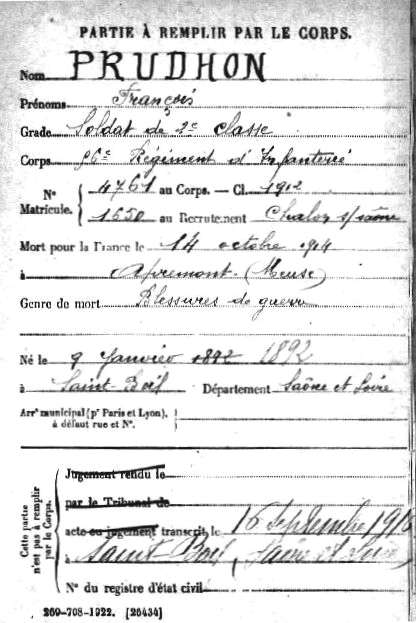 PARTIE À REMPLIR PAR LE CORPS.
Nom PRUDHON
Prénoms François
Grade Soldat de 2e classe
Corps 56e Régiment d'Infanterie
N° Matricule. { 4761 au Corps. — Cl. 1912
1550 au Recrutement Chalon s/saône
Mort pour la France le 14 octobre 1914
à Apremont (Meuse)
Genre de mort Blessures de guerre
Né le 9 Janvier 1892 1892
à Saint Boil Département Saône et Loire
Arrt municipal (pr Paris et Lyon), à défaut rue et N°.
Cette partie n'est pas à remplir par le Corps.
Jugement rendu le
par le Tribunal de
acte ou jugement transcrit le 16 Septembre
à Saint Boil, Saône et Loire
N° du registre d'état civil
269-708-1922. [26434]